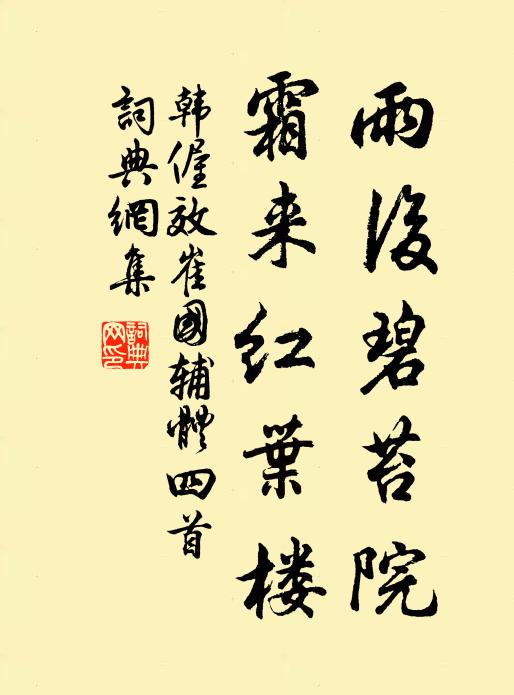 雨後碧苔院
霜来红葉楼
韩偓效崔國辅體四首
詞典網集
詞典网印